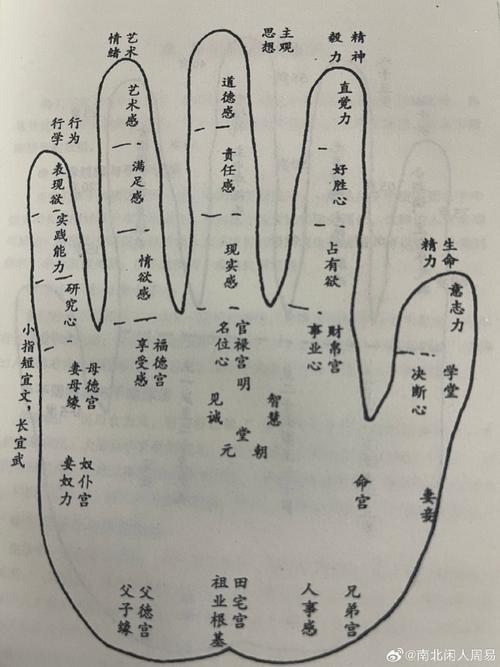 艺术
情绪
主观
思想
精神
毅力
行为
行学
生命
精力
艺术感
满足感
情欲感
道德感
责任感
现实感
直觉力
好胜心
占有欲
表现欲
实践能力
研究心
意志力
决断心
学堂
小指短宜文，长宜武
福德宫
享受感
官禄宫
名位心
财帛宫
事业心
母德宫
妻母缘
明堂
见诚
智慧
元
朝
奴仆宫
妻奴力
命宫
妻妾
父德宫
父子缘
田宅宫
祖业根基
兄弟宫
人事感
@南北闲人周易